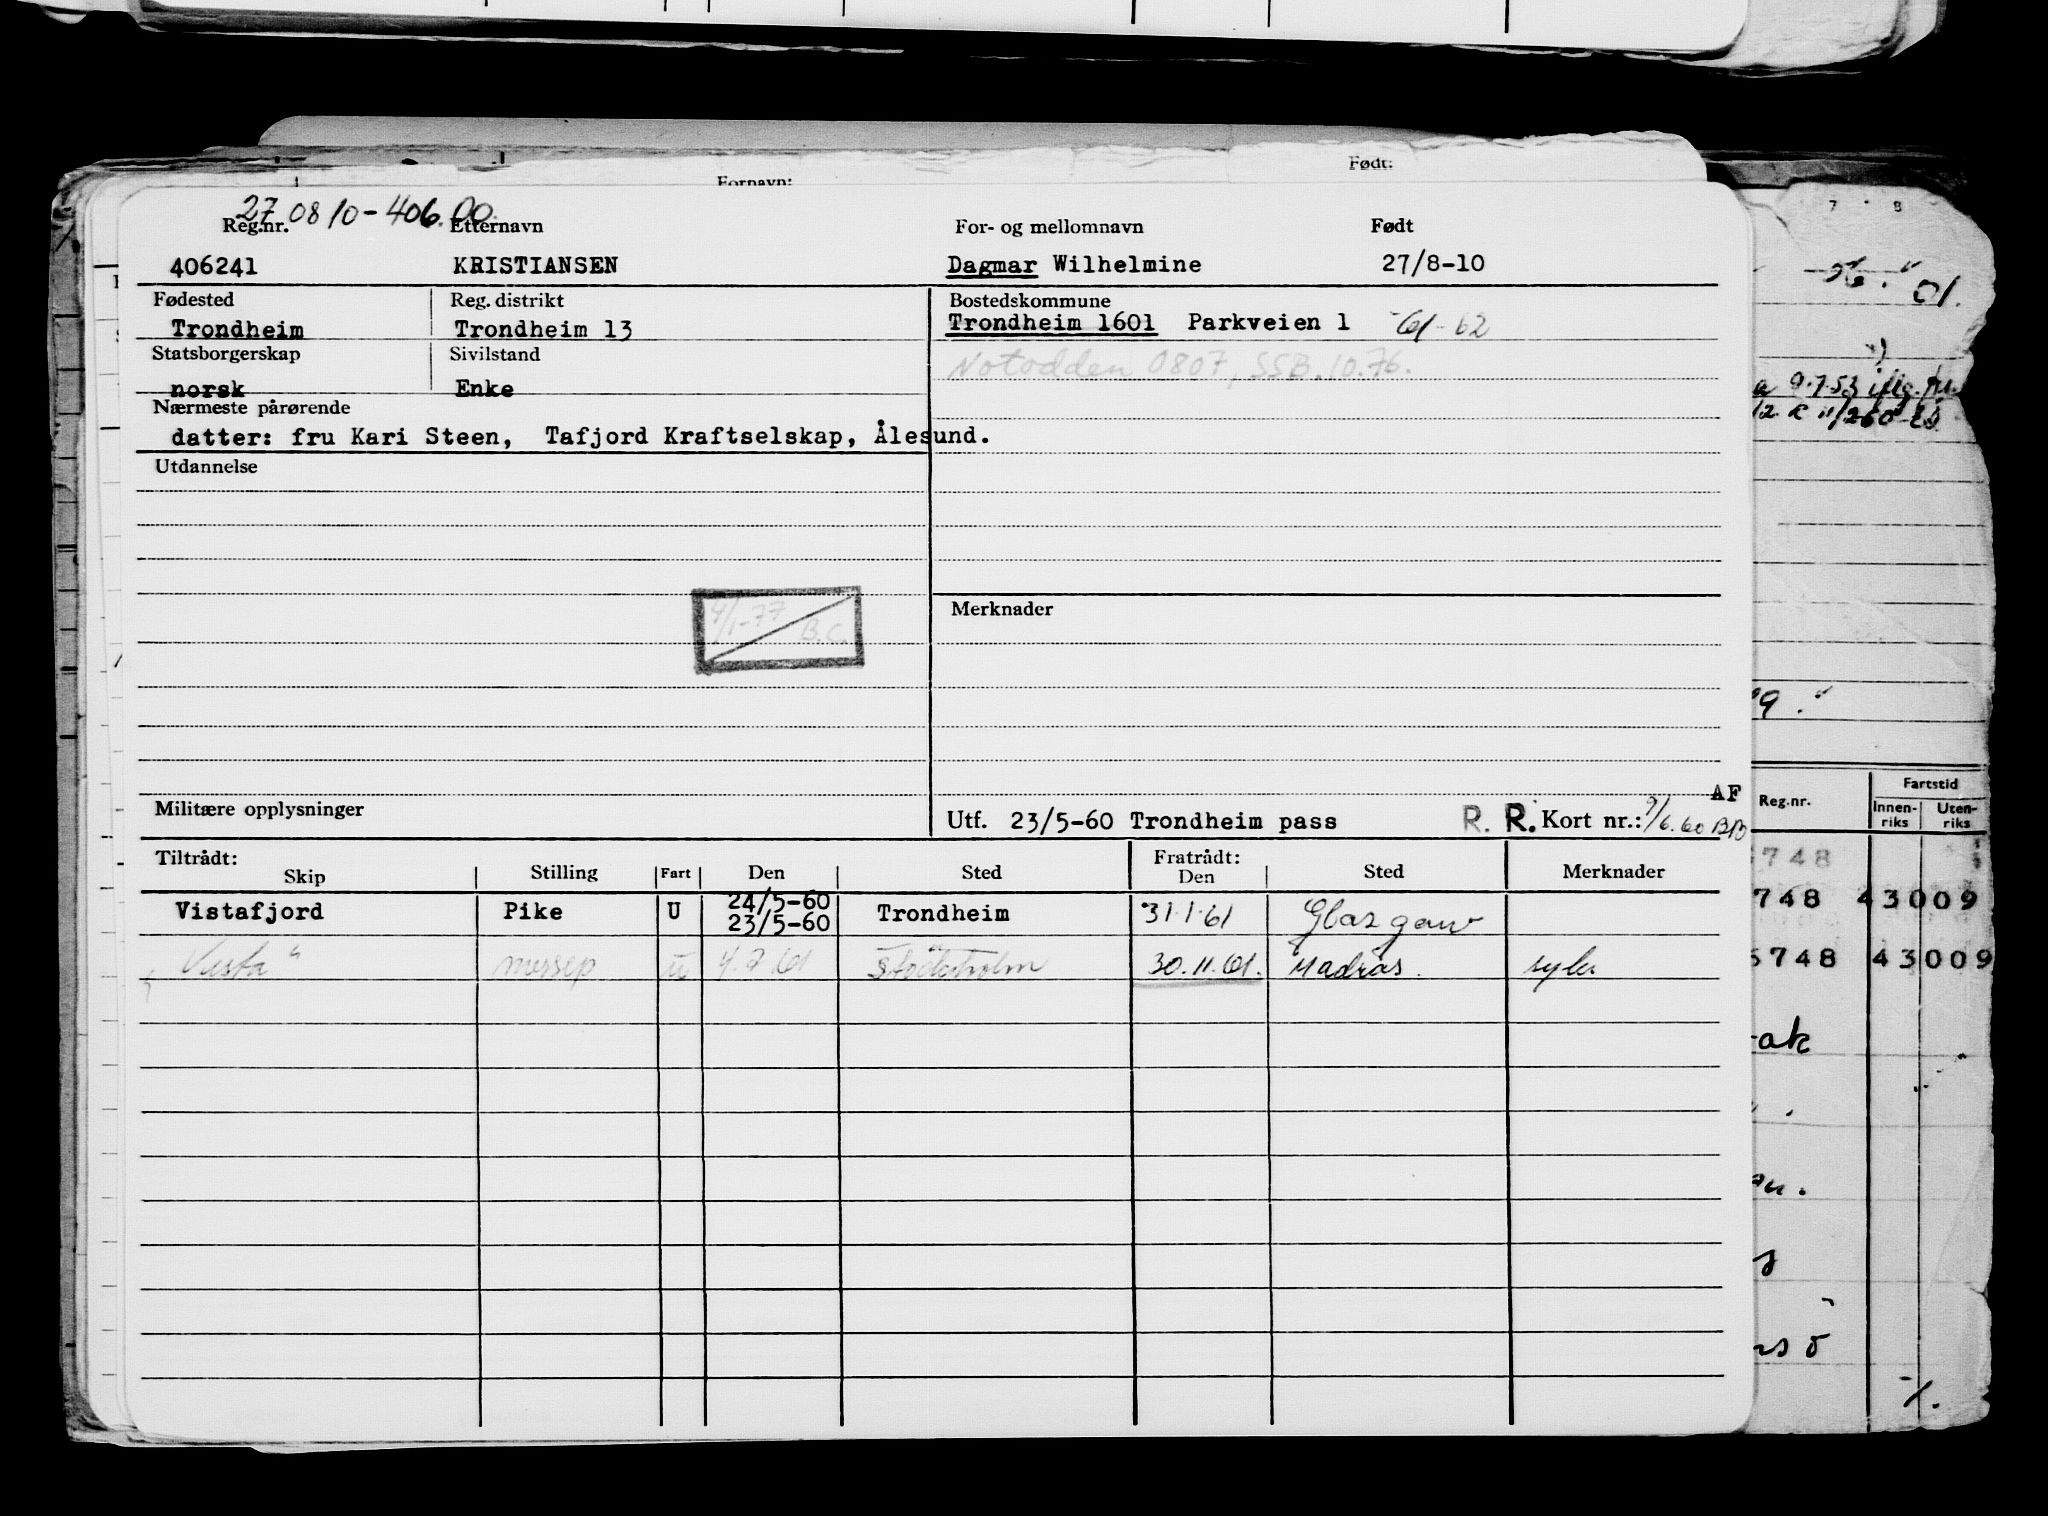 Født:
Fornavn:
27 08 10-406.00.
Reg.nr. Etternavn For- og mellomnavn Født
406241 KRISTIANSEN Dagmar Wilhelmine 27/8-10
Fødested Reg. distrikt Bostedskommune
Trondheim Trondheim 13 Trondheim 1601 Parkveien 1 -61-62
Statsborgerskap Sivilstand
Notodden 0807, SSB.10.76.
norsk Enke
Nærmeste pårørende
datter: fru Kari Steen, Tafjord Kraftselskap, Ålesund.
Utdannelse
4/1-77 B.C.
Merknader
Militære opplysninger
AF
Utf. 23/5-60 Trondheim pass R. R. Kort nr.: 9/6.60 BB
Tiltrådt: Fratrådt:
Skip Stilling Fart Den Sted Den Sted Merknader
24/5-60
Vistafjord Pike U 23/5-60 Trondheim 31.1.61 Glasgow
Vista " messep U 4.7.61 Stockholm 30.11.61. Madras. syk
7 8
01.
a 9.7.53 iflg.
9."
Reg.nr. Fartstid
Innen-riks Uten-riks
748
748 43009
5748 43009